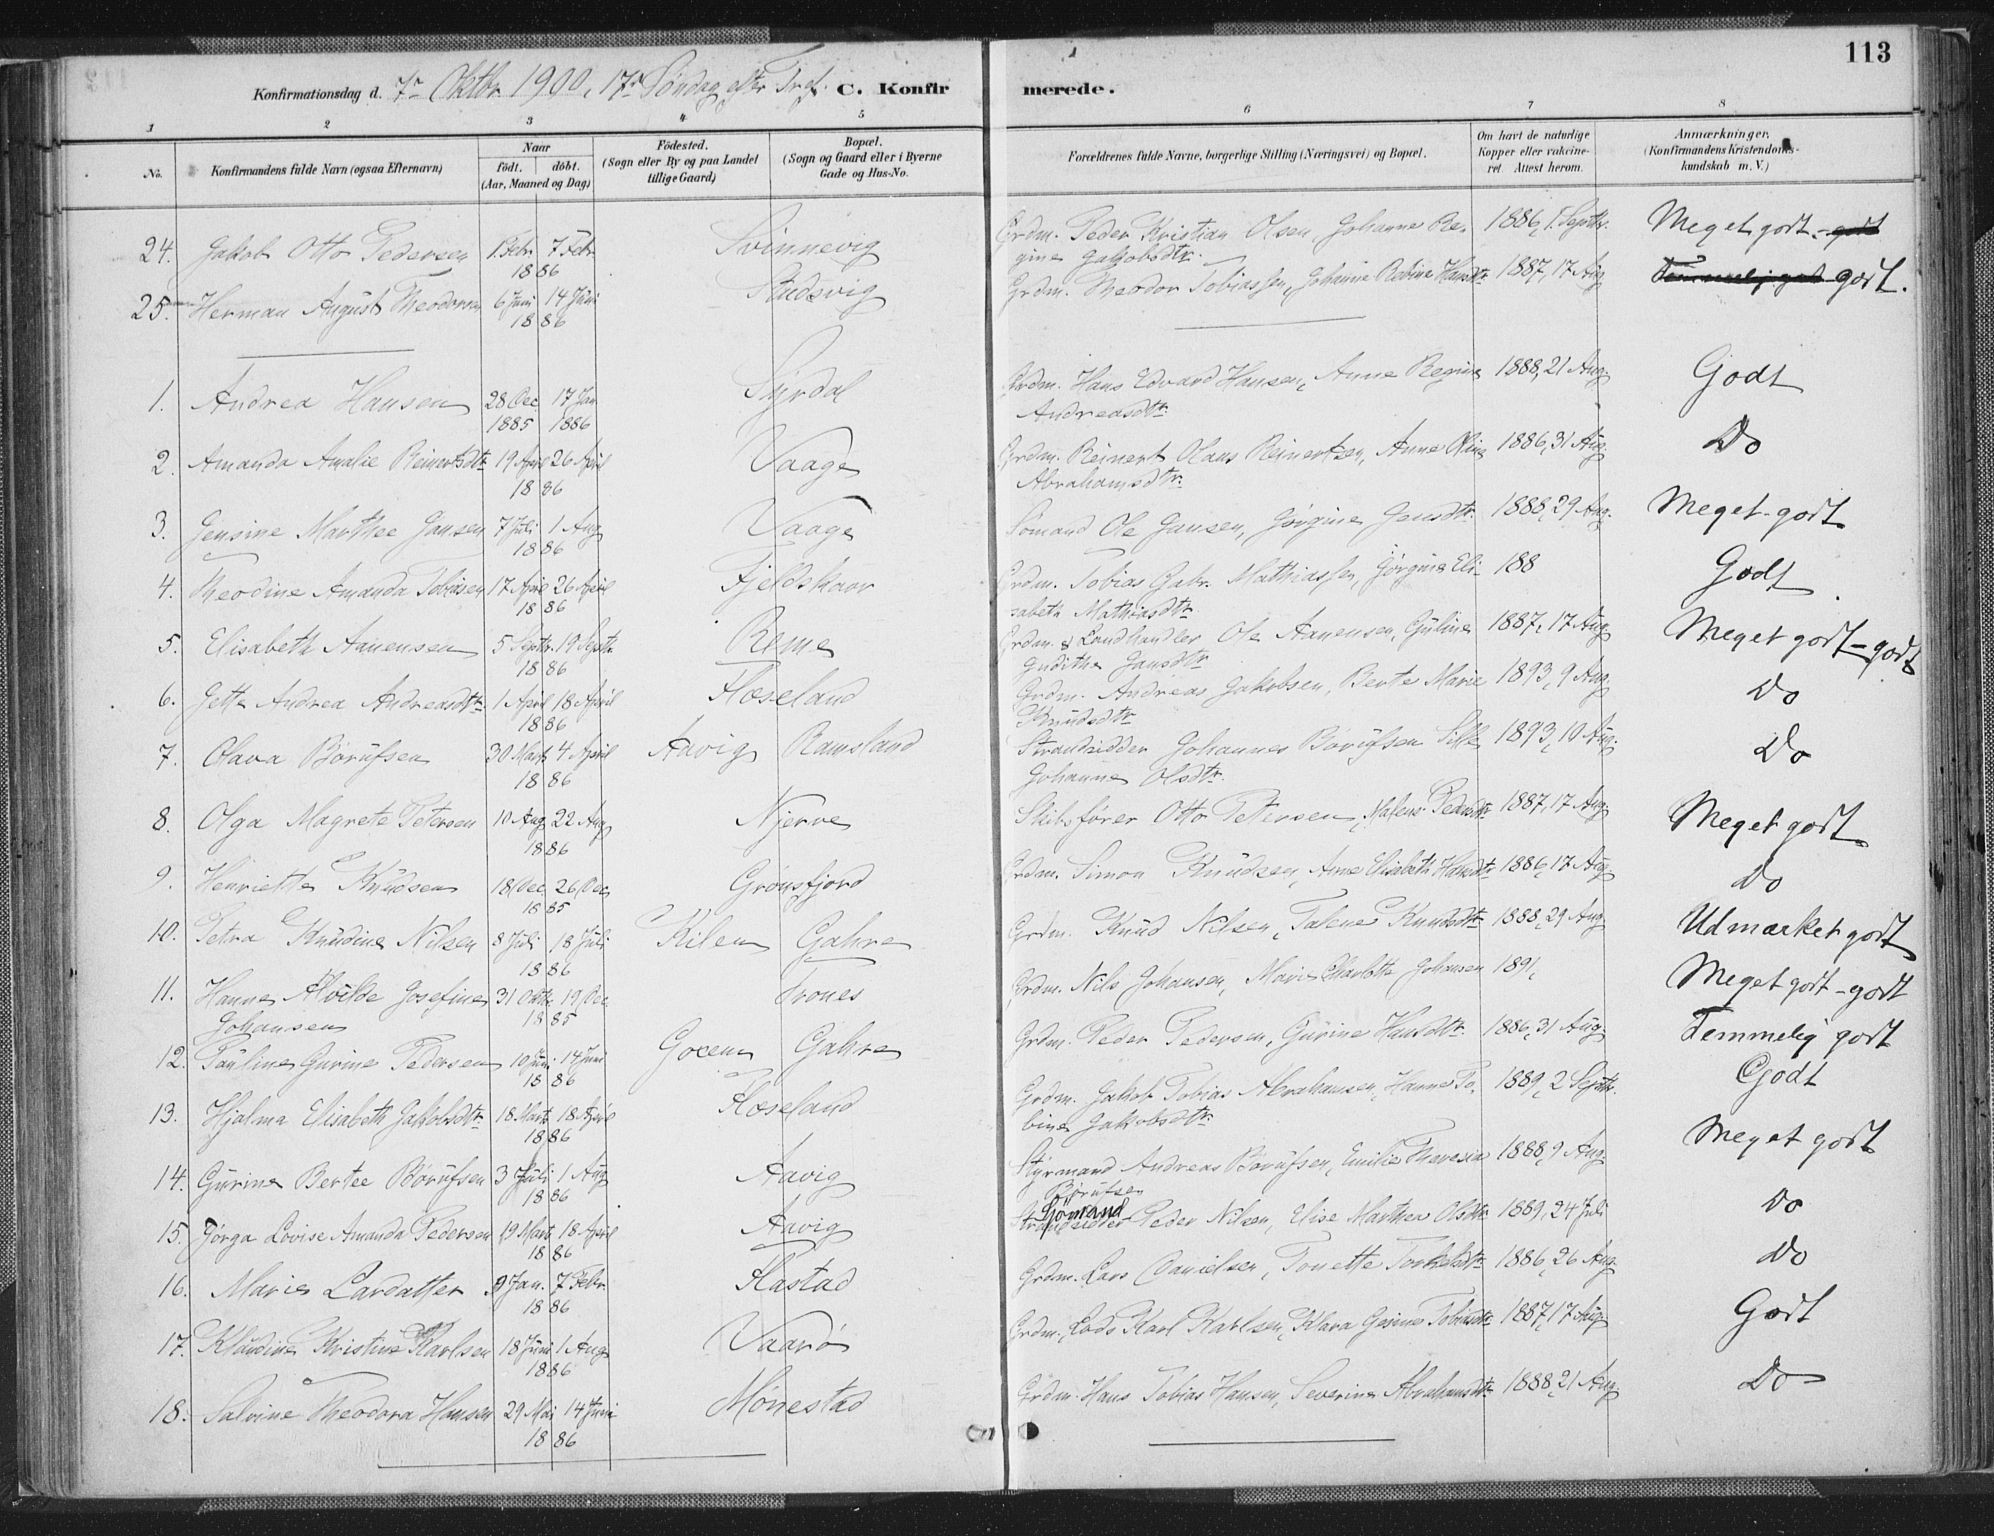 113
Konfirmationsdag d. 7de Oktbr. 1900, 17de Søndag efter Tref. C. Konfirmerede.
1 2 3 4 5 6 7 8
No. Konfirmandens fulde Navn (ogsaa Efternavn) Naar født. døbt. (Aar, Maaned og Dag) Fødested. (Sogn eller By og paa Landet tillige Gaard) Bopæl. (Sogn og Gaard eller i Byerne Gade og Hus-No. Forældrenes fulde Navne, borgerlige Stilling (Næringsvei) og Bopæl. Om havt de naturlige Kopper eller vakcineret. Attest herom. Anmærkninger, (Konfirmandens Kristendomskundskab m. V.)
24. Jakob Otto Pedersen 1. Febr. 7 Febr. 1886 Svinnevig Grdm. Peder Kristian Olsen, Johanne Regine Jakobsdtr. 1886, 1. Septbr. Meget godt. - godt
25. Herman August Theodorsen 6 Juni 14 Juni 1886 Studsvig Grdm. Theodor Tobiassen, Johanne Rabine Hansdtr 1887, 17 Aug. Temmelig godt godt.
1. Andrea Hansen 28 Dec. 1885 17 Jan 1886 Syrdal Grdm. Hans Edvard Hansen, Anne Regine Andreasdtr. 1888, 21 Aug. Godt
2. Amanda Amalie Reinertsdtr 19 April 26 April 1886 Vaage Grdm. Reinert Olaus Reinertsen, Anne Oline Abrahamsdtr. 1886, 31 Aug. Do
3. Jensine Marthee Jansen 7 Juli 1 Aug 1886 Vaage Sømand Ole Jansen, Jørgine Jensdtr. 1888, 29 Aug. Meget godt
4. Theodine Amanda Tobiasen 17 April 26 April 1886 Fjeldskaar Grdm. Tobias Gabr. Mathiassen, Jørgine Elisabeth Mathiasdtr 188 Godt
5. Elisabeth Aanensen 5 Septbr. 19 Septbr 1886 Reme Grdm. & Landhandler Ole Aanensen, Guline Judithe Jansdtr 1887, 17 Aug. Meget godt - godt
6. Jette Andrea Andreasdtr. 1 April 18 April 1886 Hoseland Grdm. Andreas Jakobsen, Berte Marie Knudsdtr 1893, 9 Aug. Do
7. Olava Børufsen 30 Marts 4 April 1886 Aavig Ramsland Strandsidder Johannes Børufsen Silke Johanne Olsdtr. 1893, 10 Aug. Do
8. Olga Magrete Petersen 10 Aug. 22 Aug 1886 Njerve Skibsfører Otto Petersen, Malene Pedersdtr 1887, 17 Aug. Meget godt
9. Henriette Knudsen 18 Dec. 26 Dec 1885 Grønsfjord Grdm. Simon Knudsen, Anne Elisabeth Hansdtr 1886, 17 Aug. Do
10. Petra Knudine Nilsen 8 Juli 18 Juli 1886 Kilen Gahre Grdm. Knud Nilsen, Talene Knudsdtr 1888, 29 Aug. Udmærket godt
11. Hanne Alvilde Josefine Johansen 31 Oktbr. 19 Dec 1885 Trones Grdm. Nils Johansen, Marie Charlotte Johansen 1891, Meget godt - godt
12. Pauline Gurine Pedersen 10 Juni 14 Juni 1886 Goeen Gahre Grdm. Peder Pedersen, Gurine Hansdtr. 1886, 31 Aug. Temmelig godt
13. Hjalma Elisabeth Jakobsdtr. 18 Marts 18 April 1886 Hoseland Grdm. Jakob Tobias Abrahamsen, Hanne Tobine Jakobsdtr. 1889, 2 Septbr. Godt
14. Gurine Bertee Børufsen 3 Juli 1 Aug 1886 Aavig Styrmand Andreas Børufsen, Emilie Theresia Børufsen 1888, 9 Aug. Meget godt
15. Jørga Lovise Amanda Pedersen 19 Mart 18 April 1886 Aavig Strandsidder Sømand Peder Nilsen, Elise Marthea Olsdtr 1889, 24 Juli Do
16. Marie Larsdatter 9 Jan. 7 Febr. 1886 Hastad Grdm. Lars Danielsen, Tonette Torkelsdtr 1886, 26 Aug. Do
17. Klaudine Kristine Karlsen 18 Juni 1 Aug 1886 Vaarø Grdm. Lods Karl Karlsen, Klara Gesine Tobiasdtr 1887, 17 Aug. Godt
18. Salvine Theodora Hansen 29 Mai 14 Juni 1886 Mønestad Grdm. Hans Tobias Hansen, Severine Abrahamsdtr 1888, 21 Aug Do